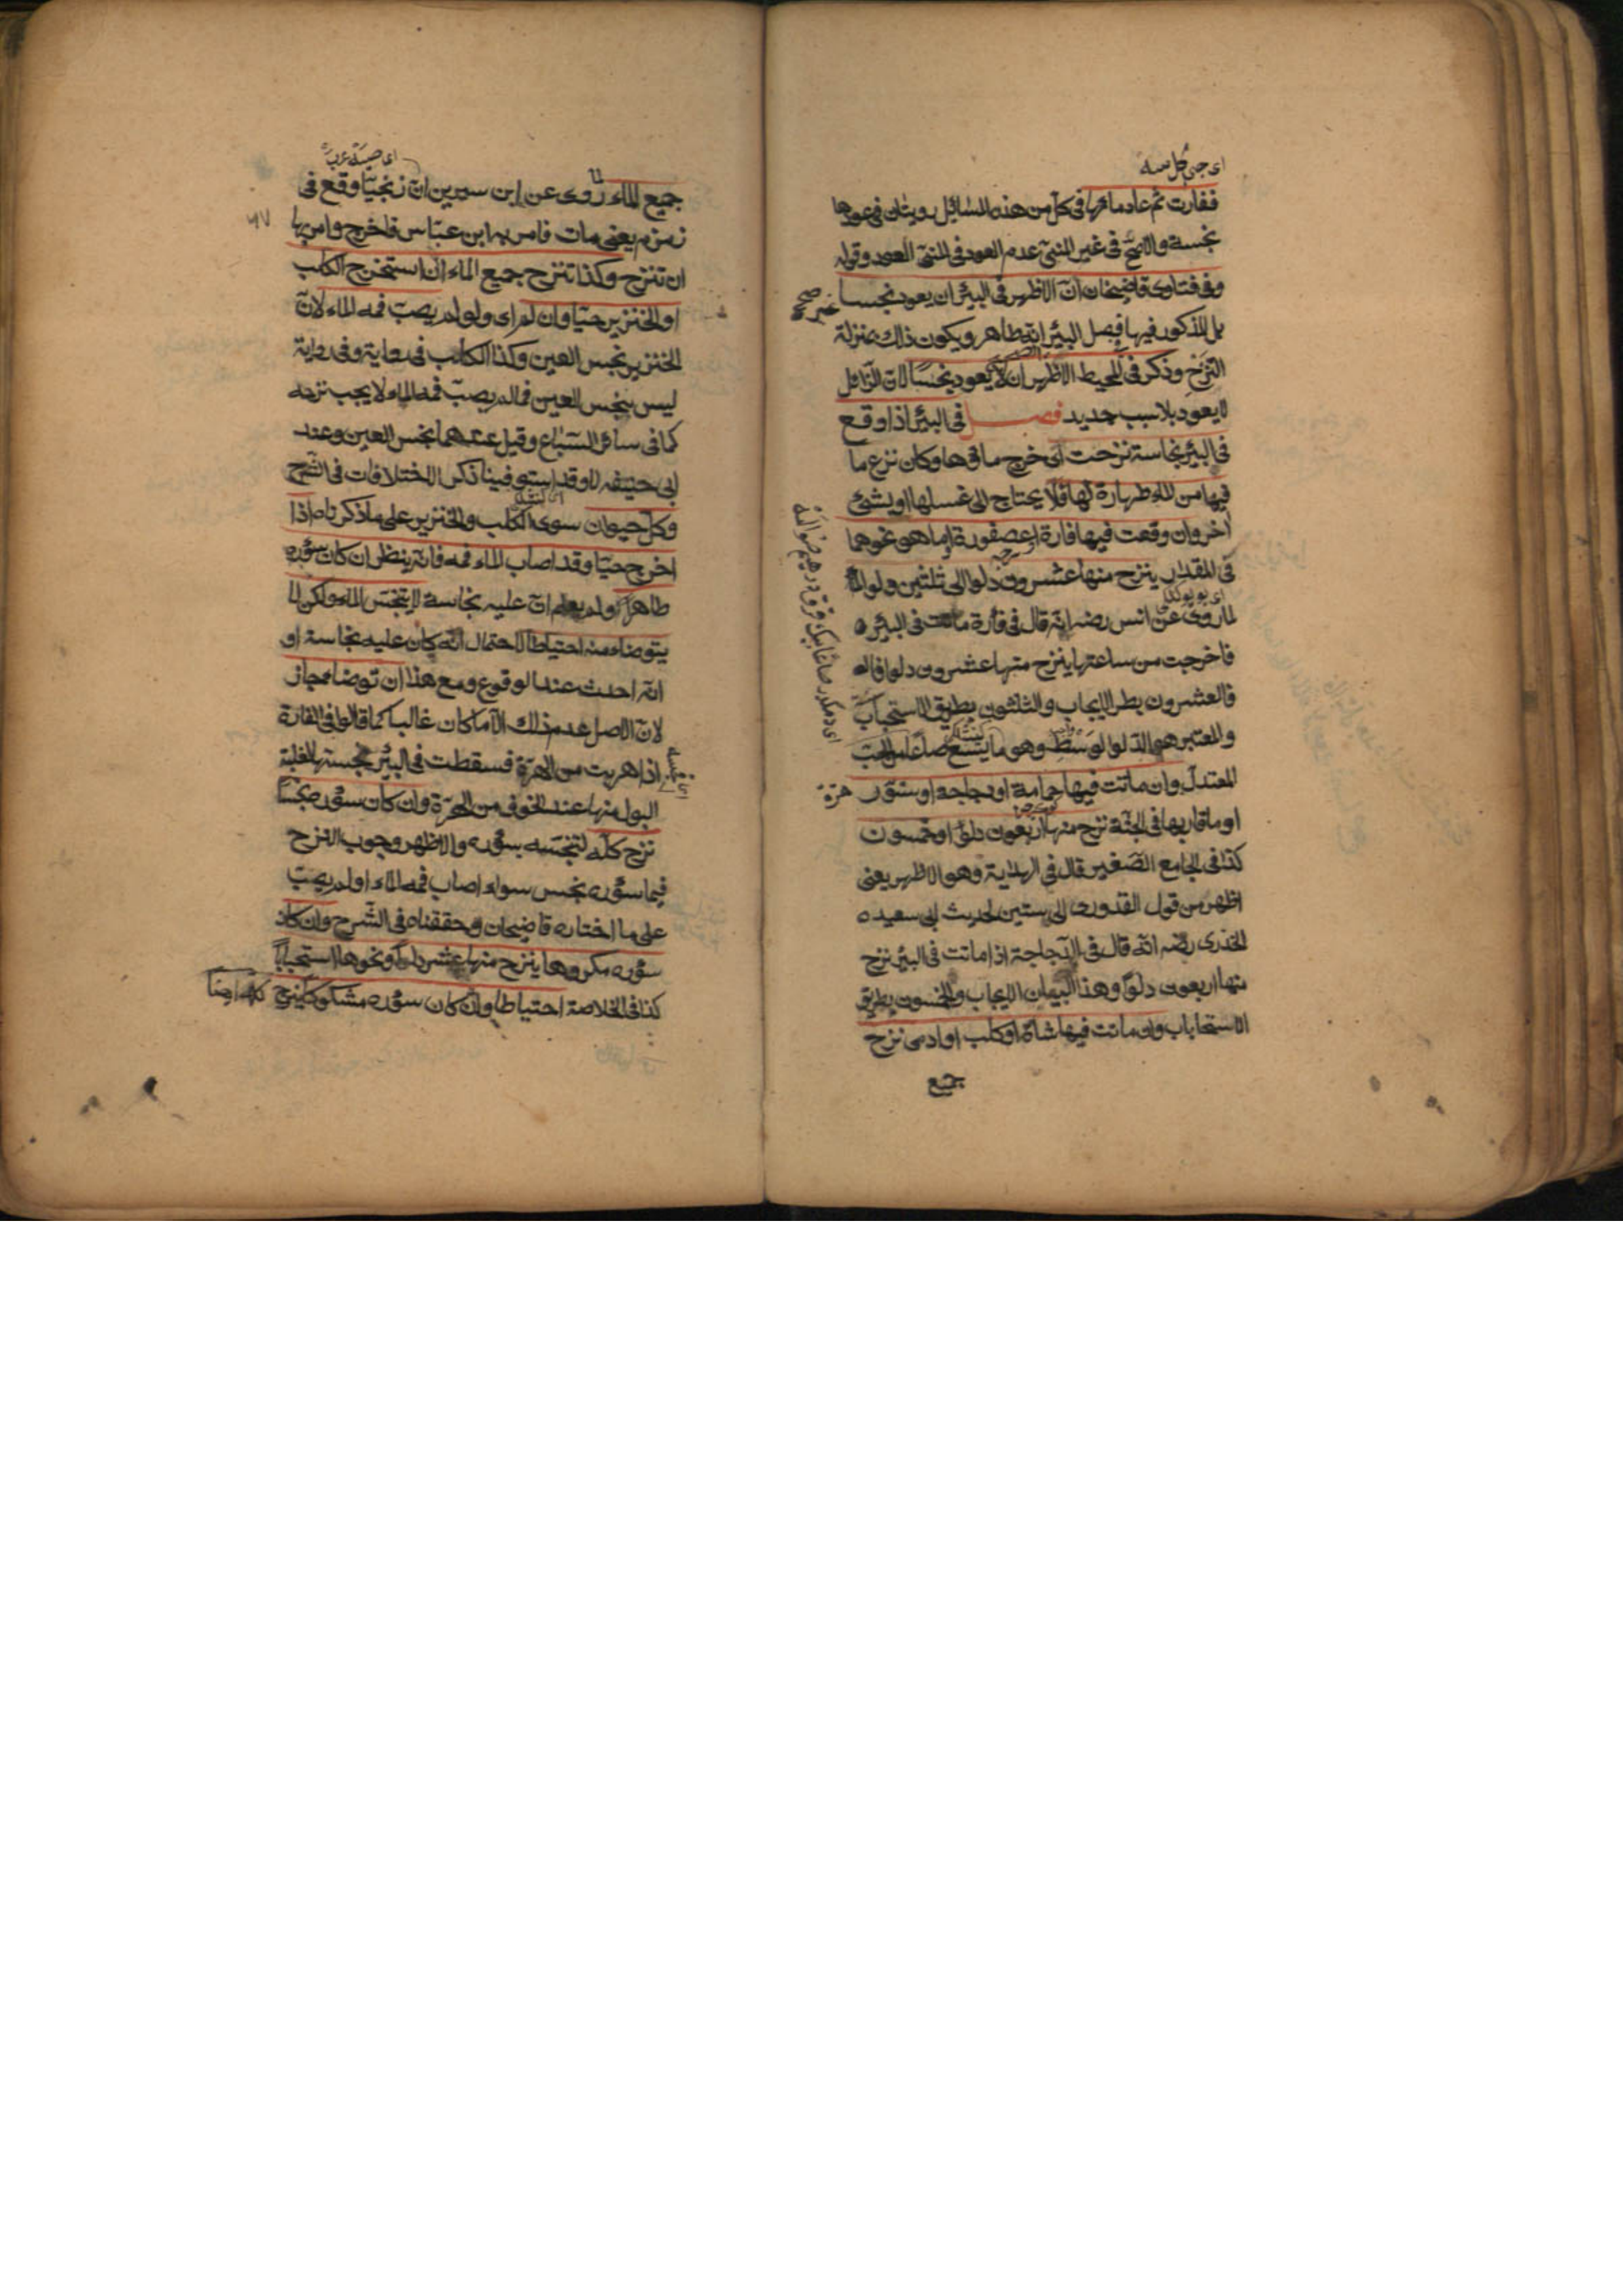 فغارت ثم عاد ماؤها فى كل من هذه المسائل رويتان فى عودها
نجسة والاصح فى غير المنىّ عدم العود فى المنىّ العود وقوله
وفى فتاوى قاضيخان انّ الاظهر فى البئر ان يعود نجسا
غير صحيح
بل المذكور فيها فى فصل البئر انه طاهر ويكون ذلك بمنزلة
النزح وذكر فى المحيط الاظهر ان لا يعود نجسا لان الزائل
لا يعود بلا سبب جديد فصل فى البئر اذا وقع
فى البئر نجاسة نزحت اى خرج ماؤها وكان نزح ما
فيها من الماء طهارة لها فلا يحتاج الى غسلها او بشئ
اخر وان وقعت فيها فارة او عصفورة او ما هو نحوهما
فى المقدار ينزح منها عشرون دلوا الى ثلثين
لما روى عن انس رضه انه قال فى فأرة ماتت فى البئر
فاخرجت من ساعتها ينزح منها عشرون دلوا
فالعشرون بطر الايجاب والثلثون بطريق الاستحباب
والمعتبر هو الدلو الوسط وهو ما يسع صاعا من الحب
المعتدل وان ماتت فيها حمامة او دجاجة او سنور
هرة
او ما قاربها فى الجثة نزح منها اربعون دلوا او خمسون
كذا فى الجامع الصغير قال فى الهداية وهو الاظهر يعنى
اظهر من قول القدورى الى ستين لحديث ابى سعيد
الخدرى رضه انه قال فى الدجاجة اذا ماتت فى البئر نزح
منها اربعون دلوا وهذا البيان الايجاب والخمسون بطريق
الاستحباب وان ماتت فيها شاة او كلب او ادمى نزح
جميع
جميع الماء روى عن ابن سيرين ان زنجيا وقع فى
زمزم يعنى مات فامر به ابن عباس فاخرج وامر بها
ان تنزح وكذا تنزح جميع الماء ان استخرج الكلب
او الخنزير حيّا وان لم اى ولو لم يصب فمه الماء لانّ
الخنزير نجس العين وكذا الكلب فى رواية وفى رواية
ليس بنجس العين فما لم يصب فمه الماء لا يجب نزحه
كما فى سائر السباع وقيل عندهما نجس العين وعند
ابى حنيفه لا وقد استوفينا ذكر الاختلافات فى الشرح
وكل حيوان سوى الكلب والخنزير على ما ذكرناه اذا
اخرج حيّا وقد اصاب الماء فمه فانه ينظر ان كان سؤره
طاهرا ولم يعلم انّ عليه نجاسة لا يتنجس الماء ولكن لا
يتوضاء منه احتياطا لاحتمال انه كان عليه نجاسة او
انّه احدث عند الوقوع ومع هذا ان توضاء جاز
لانّ الاصل عدم ذلك الا ما كان غالبا كما قالوا فى الفارة
اذا هربت من الهرة فسقطت فى البئر نجسته لغلبة
البول منها عند الخوف من الهرّة وان كان سؤره نجسا
نزح كلّه لتنجسه بسؤره والاظهر وجوب النزح
فيما سؤره نجس سواء اصاب فمه الماء او لم يصب
على ما اختاره قاضيخان وحققناه فى الشرح وان كان
سؤره مكروها ينزح منها عشر دلاء ونحوها استحبابا
كذا فى الخلاصة احتياطا وان كان سؤره مشكوكا ينزح كله ايضا